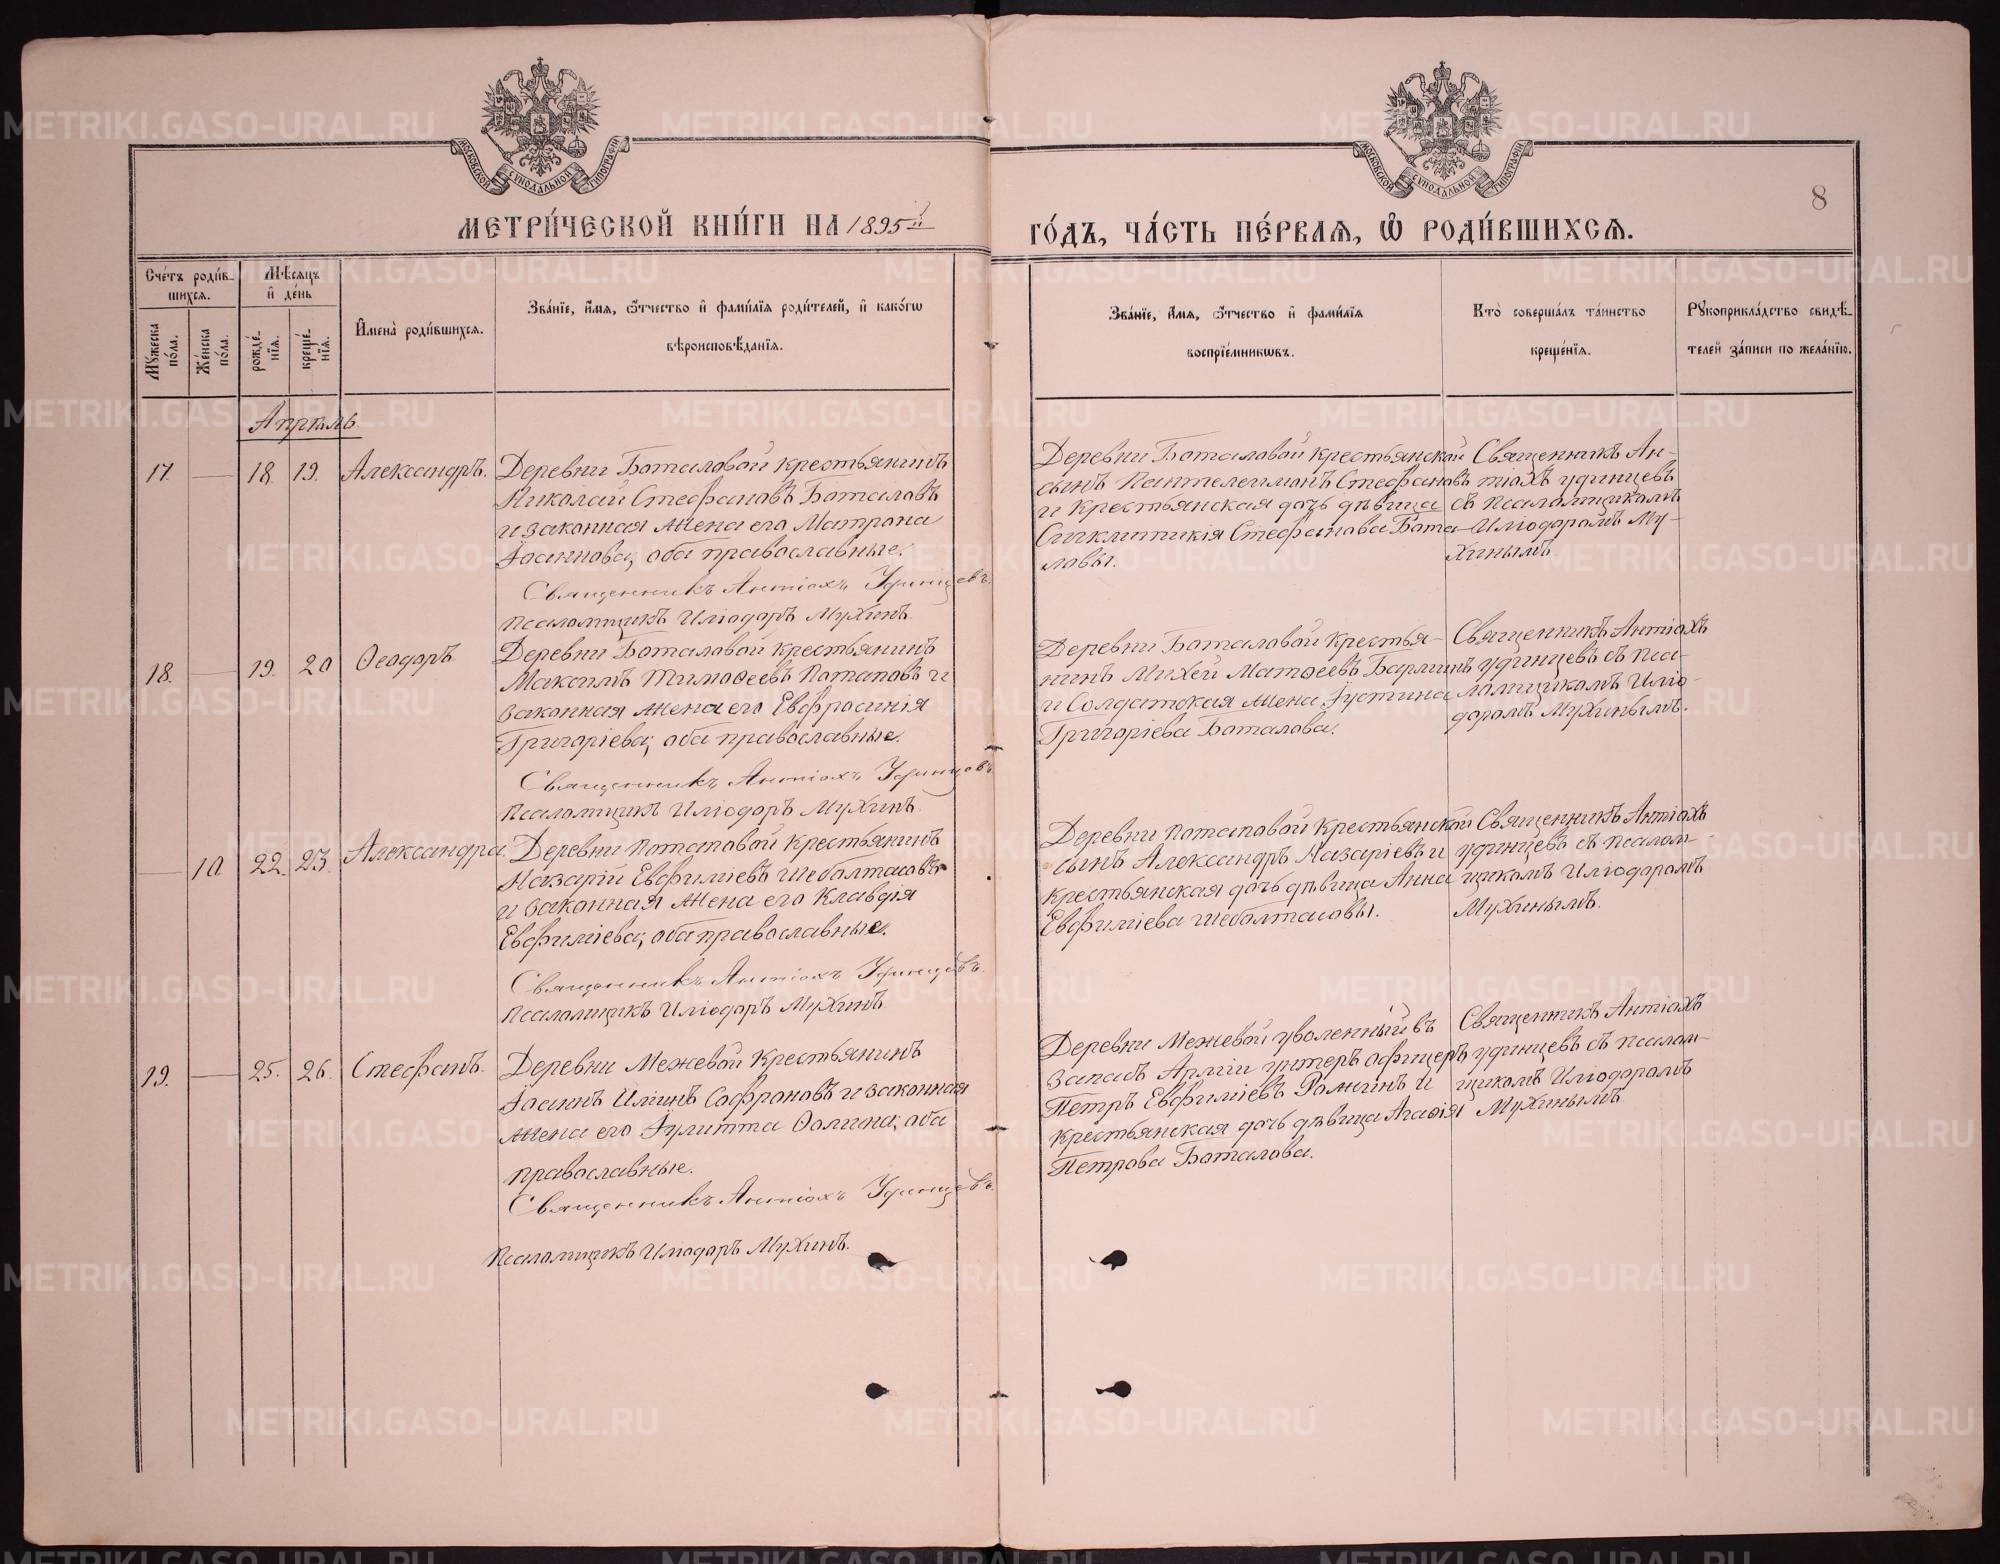 МОСКОВСКОЙ СѴНОДАЛЬНОЙ ТИПОГРАФІИ
МОСКОВСКОЙ СѴНОДАЛЬНОЙ ТИПОГРАФІИ
8
МЕТРИ́ЧЕСКОЙ КНИ́ГИ НА 1895й
ГО́ДЪ, ЧА́СТЬ ПЕ́РВАѦ, Ѡ РОДИ́ВШИХСѦ.
Сче́тъ роди́в-
шихсѧ.
Мꙋжеска по́ла.
Же́нска по́ла.
Мѣ́сѧцъ
и҆ де́нь
рожде́-нїѧ.
креще́-нїѧ.
И҆мена̀ роди́вшихсѧ.
Зва́нїе, и҆́мѧ, ѻ҆́тчество и҆ фами́лїѧ роди́телей, и҆ како́гѡ
вѣроисповѣ́данїѧ.
Зва́нїе, и҆́мѧ, ѻ҆́тчество и҆ фами́лїѧ
воспрїе́мникѡвъ.
Кто̀ соверша́лъ та́инство
креще́нїѧ.
Рꙋкоприкла́дство свидѣ́-
телей за́писи по жела́нїю.
Апрѣль
17. — 18. 19. Александръ.
Деревни Баталовой крестьянинъ
Николай Стефановъ Баталовъ
и законная жена его Матрона
Іоаннова; оба православные.
Священникъ Антіохъ Удинцевъ.
Псаломщикъ Иліодоръ Мухинъ.
Деревни Баталовой крестьянской
сынъ Пантелеимонъ Стефановъ
и крестьянская дочь дѣвица
Сигклитикія Стефанова Бата-
ловы.
Священникъ Ан-
тіохъ Удинцевъ
съ псаломщикомъ
Иліодоромъ Му-
хинымъ.
18. — 19. 20 Ѳеодоръ.
Деревни Баталовой крестьянинъ
Максимъ Тимоѳеевъ Потаповъ и
законная жена его Евфросинія
Григоріева; оба православные.
Священникъ Антіохъ Удинцовъ
Псаломщикъ Иліодоръ Мухинъ.
Деревни Баталовой крестья-
нинъ Михей Матѳеевъ
и Солдатская жена Іустина
Григоріева Баталова.
Священникъ Антіохъ
Удинцевъ съ пса-
ломщикомъ Иліо-
доромъ Мухинымъ.
— 10 22. 23. Александра
Деревни Потаповой крестьянинъ
Назарій Евфиміевъ Шеболтасовъ
и законная жена его Клавдія
Евфиміева; оба православные.
Священникъ Антіохъ Удинцевъ.
Псаломщикъ Иліодоръ Мухинъ.
Деревни Потаповой Крестьянской
сынъ Александръ Назаріевъ и
крестьянская дочь дѣвица Анна
Евфиміева Шеболтасовы.
Священникъ Антіохъ
Удинцевъ съ псалом-
щикомъ Иліодоромъ
Мухинымъ.
19. — 25. 26. Стефанъ.
Деревни Межевой Крестьянинъ
Іоаннъ Иліинъ Софроновъ и законная
жена его Іулитта Ѳомина; оба
православные.
Священникъ Антіохъ Удинцевъ.
Псаломщикъ Иліодоръ Мухинъ.
Деревни Межевой уволенный въ
запасъ Арміи унтеръ офицеръ
Петръ Евфиміевъ и
крестьянская дочь дѣвица Агафія
Петрова Баталова.
Священникъ Антіохъ
Удинцевъ съ псалом-
щикомъ Иліодоромъ
Мухинымъ.
METRIKI.GASO-URAL.RU